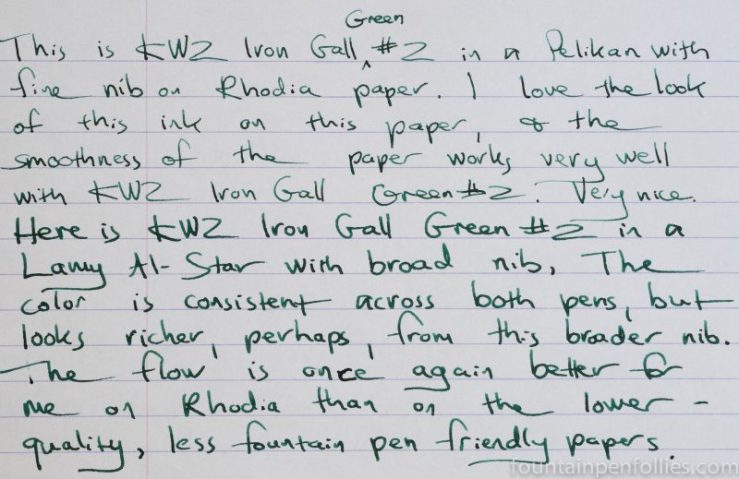 Green
This is KWZ Iron Gall ^ #2 in a Pelikan with
fine nib on Rhodia paper. I love the look
of this ink on this paper, & the
smoothness of the paper works very well
with KWZ Iron Gall Green #2. Very nice.
Here is KWZ Iron Gall Green #2 in a
Lamy Al-Star with broad nib. The
color is consistent across both pens, but
looks richer, perhaps, from this broader nib.
The flow is once again better for
me on Rhodia than on the lower-
quality, less fountain pen friendly papers.
fountainpenfollies.com